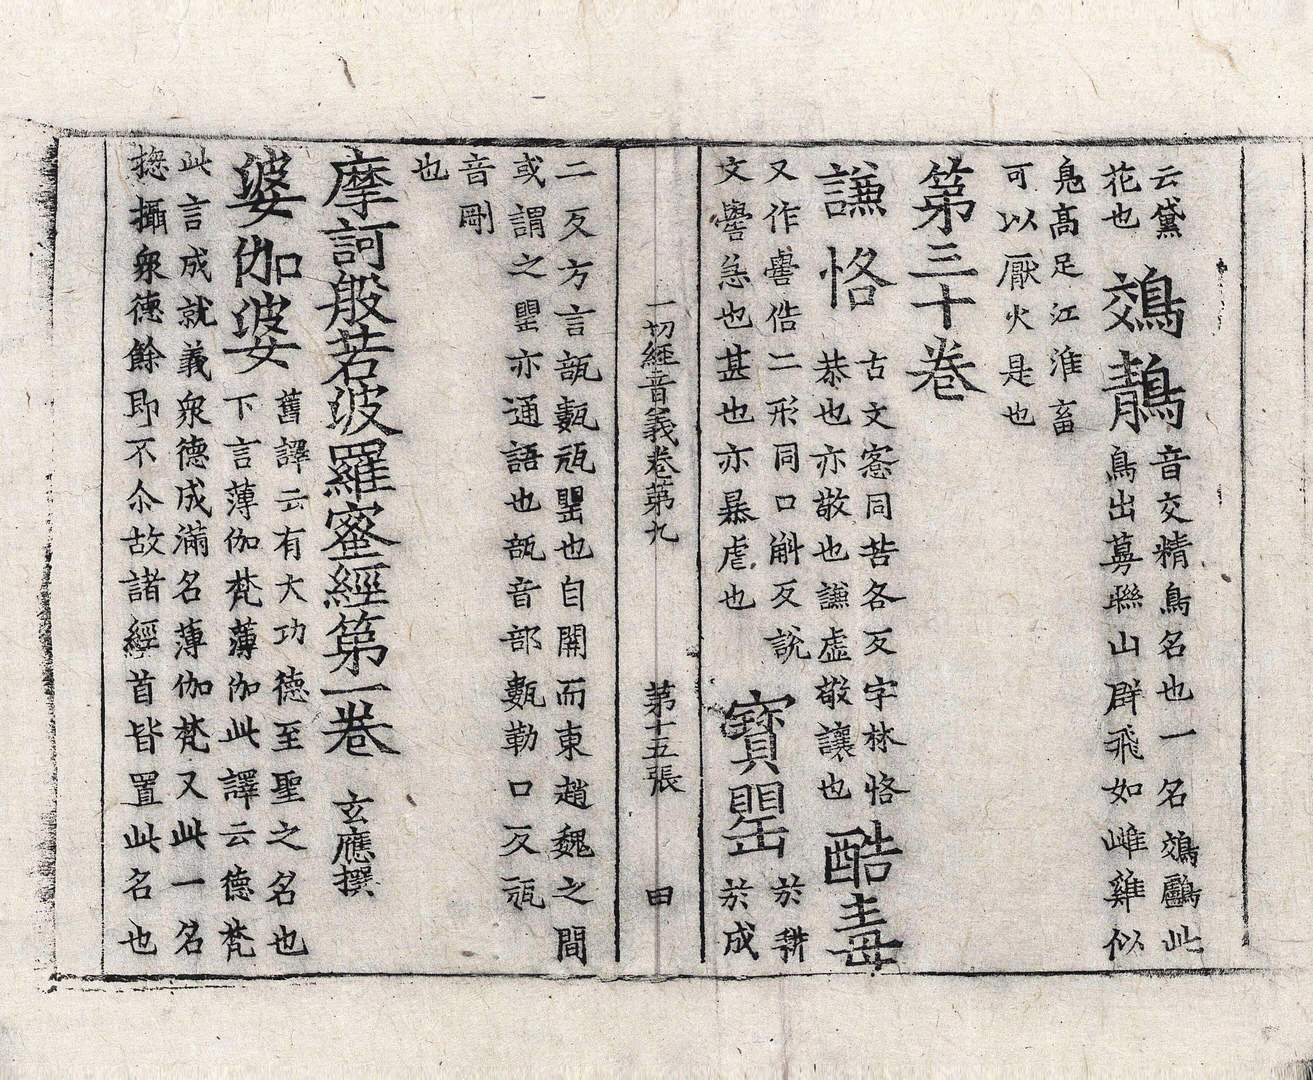 云黛
花也
鵁鶄
音交精鳥名也一名鵁鸕此
鳥出蓴聯山群飛如雌雞似
鳬高足江淮畜
可以厭火是也
第三十卷
謙恪
古文愙同苦各反字林恪
恭也亦敬也謙虛敬讓也
酷毒
又作嚳俈二形同口斛反說
文嚳急也甚也亦暴虐也
寶罌
於耕
於成
一切經音義卷第九 第十五張 田
二反方言瓿甊瓶罌也自關而東趙魏之間
或謂之罌亦通語也瓿音部甊勒口反瓶
音剛
也
摩訶般若波羅蜜經第一卷 玄應撰
婆伽婆
舊譯云有大功德至聖之名也
下言薄伽梵薄伽此譯云德梵
此言成就義衆德成滿名薄伽梵又此一名
揔攝衆德餘即不尒故諸經首皆置此名也